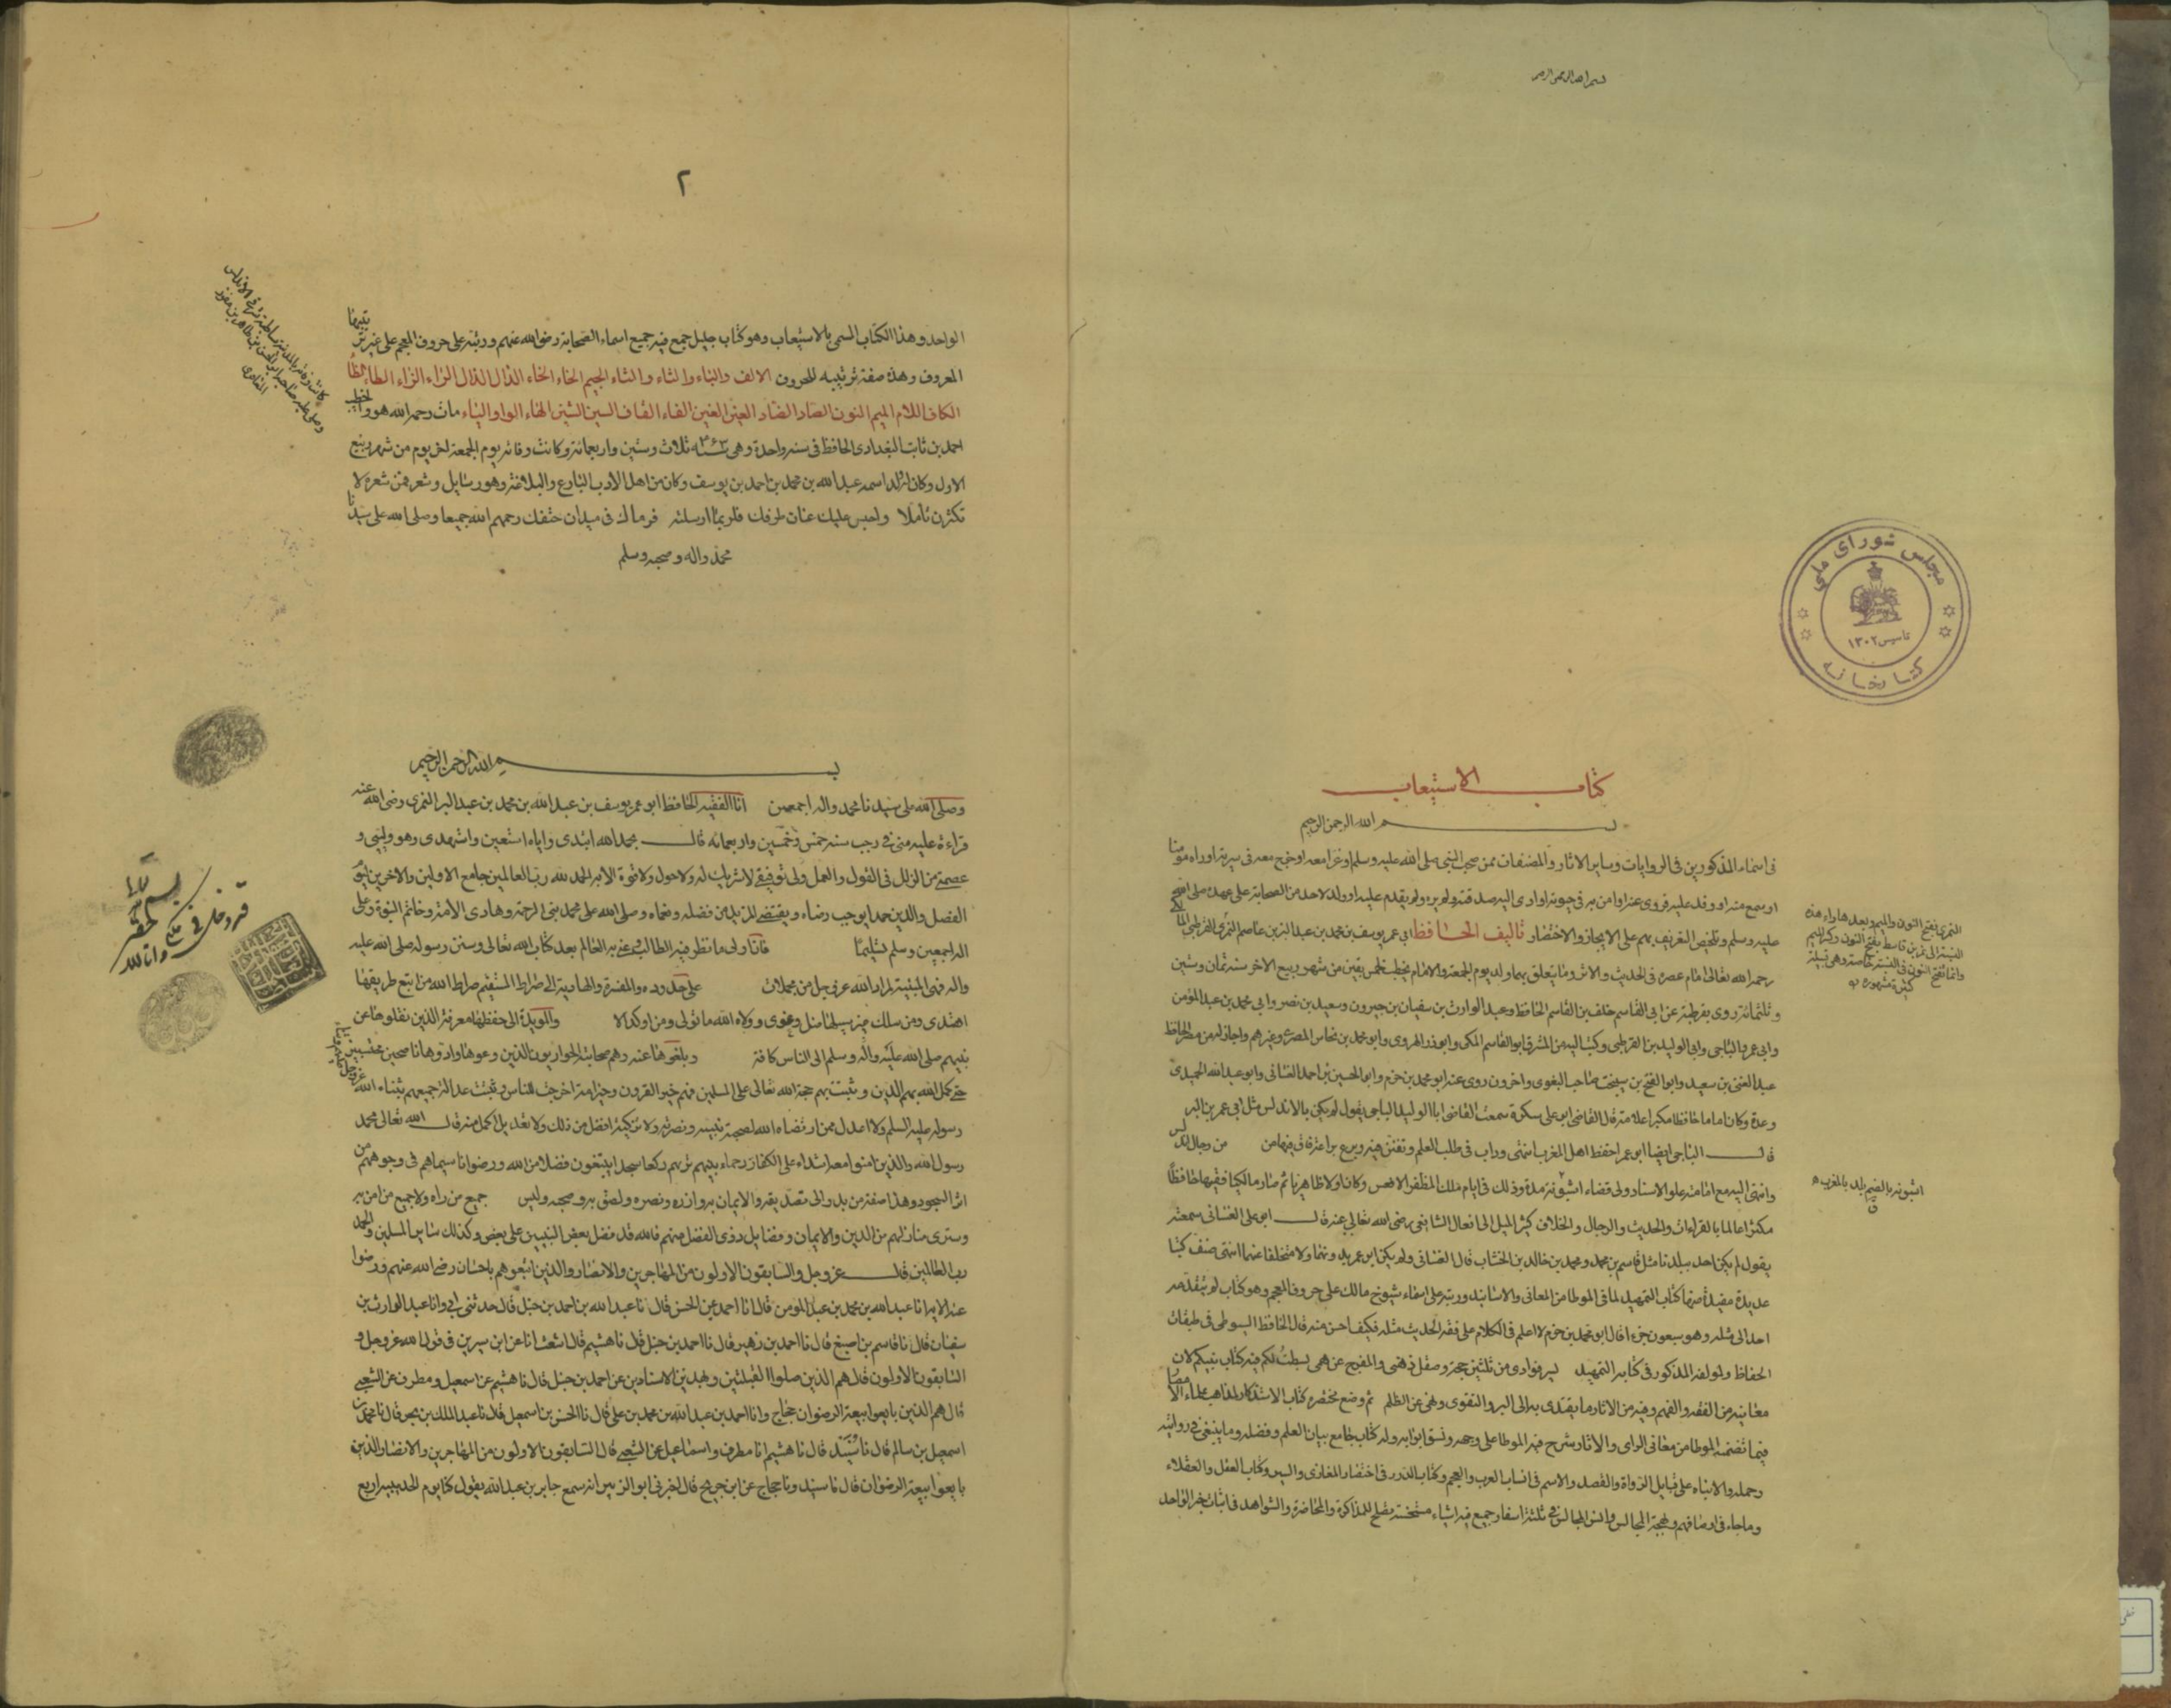 بسم الله الرحمن الرحيم
مجلس شورای ملی
تاسیس ۱۳۰۲
کتابخانه
كتاب الاستيعاب
بسم الله الرحمن الرحيم
فى اسماء المذكورين فى الروايات وساير الاثار والمصنفات ممن صحب النبى صلى الله عليه وسلم او غزا معه او خرج معه فى سرية او راه مومنا
او سمع منه او وفد عليه فروى عنه او امن به فى حيوته او ادى اليه صدقته ولم يره ولم يقدم عليه او ولد لاحد من الصحابة على عهده صلى الله
عليه وسلم وتلخيص التعريف بهم على الايجاز والاختصار تاليف الحافظ ابى عمر يوسف بن محمد بن عبد البر بن عاصم النمرى القرطبى المالكى
رحمه الله تعالى امام عصره فى الحديث والاثر وما يتعلق بهما ولد يوم الجمعة والامام يخطب لخمس بقين من شهر ربيع الاخر سنه ثمان وستين
وثلثمائة روى بقرطبة عن ابى القاسم خلف بن القاسم الحافظ وعبد الوارث بن سفيان بن جيرون وسعيد بن نصر وابى محمد بن عبد المؤمن
وابى عمر والباجى وابى الوليد بن القرطبى وكتب اليه من المشرق ابو القاسم المكى وابو ذر الهروى وابو محمد بن نحاس المصرى وغيرهم واجاز له من مصر الحافظ
عبد الغنى بن سعيد وابو الفتح بن سيبخت صاحب البغوى واخرون روى عنه ابو محمد بن حزم وابو الحسين بن احمد الغسانى وابو عبد الله الحميدى
وعدة وكان اماما حافظا مكبرا علامة قال القاضى ابو على سكرة سمعت القاضى ابا الوليد الباجى يقول لم يكن بالاندلس مثل ابى عمر بن البر
قال الباجى ايضا ابو عمر احفظ اهل المغرب انتهى وداب فى طلب العلم وتفنن فيه وبرع براعة فاق فيها من من رجال الاندلس
وانتهى اليه مع امامته علو الاسناد ولى قضاء اشبونة مدة وذلك فى ايام ملك المظفر الافطس وكان اولا ظاهريا ثم صار مالكيا فقيها حافظا
مكثرا عالما بالقراءات والحديث والرجال والخلاف كثير الميل الى افعال الشافعى رضى الله تعالى عنه قال ابو على الغسانى سمعته
يقول لم يكن احد ببلدنا مثل قاسم بن محمد ومحمد بن خالد بن الخشاب قال الغسانى ولم يكن ابو عمر بدونهما ولا متخلفا عنهما انتهى صنف كتبا
عديدة مفيدة منها كتاب التمهيد لما فى الموطا من المعانى والاسانيد ورتبه على اسماء شيوخ مالك على حروف المعجم وهو كتاب لم يتقدمه
احد الى مثله وهو سبعون جزءا قال ابو محمد بن حزم لا اعلم فى الكلام على فقه الحديث مثله فكيف احسن منه قال الحافظ السيوطى فى طبقات
الحفاظ ولمولفه المذكور فى كتابه التمهيد سمير فوادى من ثلثين حجة وصقل ذهنى والمفرج عن همى بسطت لكم فيه كتاب نبيكم لان
معانيه من الفقه والفهم وفيه من الاثار ما يقتدى به الى البر والتقوى ونهى عن الظلم ثم وضع مختصره كتاب الاستذكار لمذاهب علماء الامصار
فيما تضمنه الموطا من معانى الراى والاثار شرح فيه الموطا على وجهه ونسق ابوابه وله كتاب جامع بيان العلم وفضله وما ينبغى فى روايته
وحمله والانباه على قبايل الرواة والقصد والامم فى انساب العرب والعجم وكتاب الدرر فى اختصار المغازى والسير وكتاب العقل والعقلاء
وما جاء فى اوصافهم وبهجة المجالس وانس المجالس فى ثلثة اسفار جمع فيه اشياء مستحسنة يصلح للمذاكرة والمحاضرة والشواهد فى اثبات خبر الواحد
النمرى بفتح النون والميم وبعدها راء هذه
النسبة الى نمر بن قاسط بفتح النون وكسر الميم
وانما تفتح النون فى النسبة خاصة وهى قبيلة
كبيرة مشهورة
اشبونه بالضم بلد بالمغرب
٢
الواحد وهذا الكتاب المسمى بالاستيعاب وهو كتاب جليل جمع فيه جميع اسماء الصحابة رضوان الله عنهم ورتبه على حروف المعجم على غير ترتيبها
المعروف وهذه صفة ترتيبه للحروف الالف والباء والتاء والثاء الجيم الحاء الخاء الدال الذال الراء الزاء الطاء الظا
الكاف اللام الميم النون الصاد الضاد العين الغين الفاء القاف السين الشين الهاء الواو الياء مات رحمه الله هو والخطيب
احمد بن ثابت البغدادى الحافظ فى سنه واحدة وهى سنه ٤٦٣ ثلاث وستين واربعمائة وكانت وفاته يوم الجمعة اخر يوم من شهر ربيع
الاول وكان له ولد اسمه عبد الله بن محمد بن احمد بن يوسف وكان من اهل الادب البارع والبلاغة وهو رسايل وشعر فمن شعره لا
تكثرن تاملا واحبس عليك عنان طرفك فلربما ارسلته فرماك فى ميدان حتفك رحمهم الله جميعا وصلى الله على سيدنا
محمد واله وصحبه وسلم
بسم الله الرحمن الرحيم
وصلى الله على سيدنا محمد واله اجمعين انا الفقيه الحافظ ابو عمر يوسف بن عبد الله بن محمد بن عبد البر النمرى رضى الله عنه
قراءة عليه منى فى رجب سنه خمس وخمسين واربعمائه قال بحمد الله ابتدى واياه استعين واستهدى وهو وليى و
عصمتى من الزلل فى القول والعمل ولى توفيقى لا شريك له ولا حول ولا قوة الا به الحمد لله رب العالمين جامع الاولين والاخرين ليوم
الفصل والدين حمدا يوجب رضاه ويقتضى المزيد من فضله ونعماه وصلى الله على محمد نبى الرحمة وهادى الامة وخاتم النبوة وعلى
اله اجمعين وسلم تسليما فان اولى ما نظر فيه الطالب وعنى به العالم بعد كتاب الله تعالى وسنن رسوله صلى الله عليه
واله فهى المبينة لمراد الله عز وجل من مجملات على حدوده والمفسرة والهادية الى صراط المستقيم صراط الله من اتبع طريقها
اهتدى ومن سلك غير سبيلها ضل وغوى وولاه الله ما تولى ومن اوكد الا والمويدة الى حفظها معرفة الذين نقلوها عن
نبيهم صلى الله عليه واله وسلم الى الناس كافة وبلغوها عنه وهم صحابته الحواريون الذين وعوها وادوها ناصحين محتسبين
حتى كمل الله بهم الدين وثبت بهم حجة الله تعالى على المسلمين فهم خير القرون وخير امة اخرجت للناس وثبتت عدالة جميعهم بثناء الله
رسوله عليه السلم ولا اعدل ممن ارتضاه الله لصحبة نبيه ونصرته ولا تزكية افضل من ذلك ولا تعديل اكمل منه قال الله تعالى محمد
رسول الله والذين امنوا معه اشداء على الكفار رحماء بينهم تريهم ركعا سجدا يبتغون فضلا من الله ورضوانا سيماهم فى وجوههم من
اثر السجود وهذا صفة من بدر الى تصديقه والايمان به وازره ونصره ولصق به وصحبه وليس جميع من راه ولا جميع من امن به
وسترى منازلهم من الدين والايمان وفضايل ذوى الفضل منهم فالله قد فضل بعض النبيين على بعض وكذلك ساير المسلمين والحمد
رب العالمين قال عز وجل والسابقون الاولون من المهاجرين والانصار والذين اتبعوهم باحسان رضى الله عنهم ورضوا
عنه الاية انا عبد الله بن محمد بن عبد المومن قال انا احمد بن الحسن قال نا عبد الله بن احمد بن حنبل قال حدثنى ابى وانا عبد الوارث بن
سفيان قال نا قاسم بن اصبغ قال نا احمد بن زهير قال نا احمد بن حنبل قال نا هشيم قال اشعث انا عن ابن سيرين فى قول الله عز وجل و
السابقون الاولون قال هم الذين صلوا القبلتين وبهذين الاسنادين عن احمد بن حنبل قال نا هشيم عن اسمعيل ومطرف عن الشعبى
قال هم الذين بايعوا بيعة الرضوان حجاج وانا احمد بن عبد الله بن محمد بن على قال نا الحسن بن اسمعيل قال نا عبد الملك بن بحر قال نا محمد بن
اسمعيل بن سالم قال نا سنيد قال نا هشيم انا مطرف واسماعيل عن الشعبى قال السابقون الاولون من المهاجرين والانصار الذين
بايعوا بيعة الرضوان قال نا سنيد ونا حجاج عن ابن جريج قال اخبرنى ابو الزبير انه سمع جابر بن عبد الله يقول كنا يوم الحديبية اربع